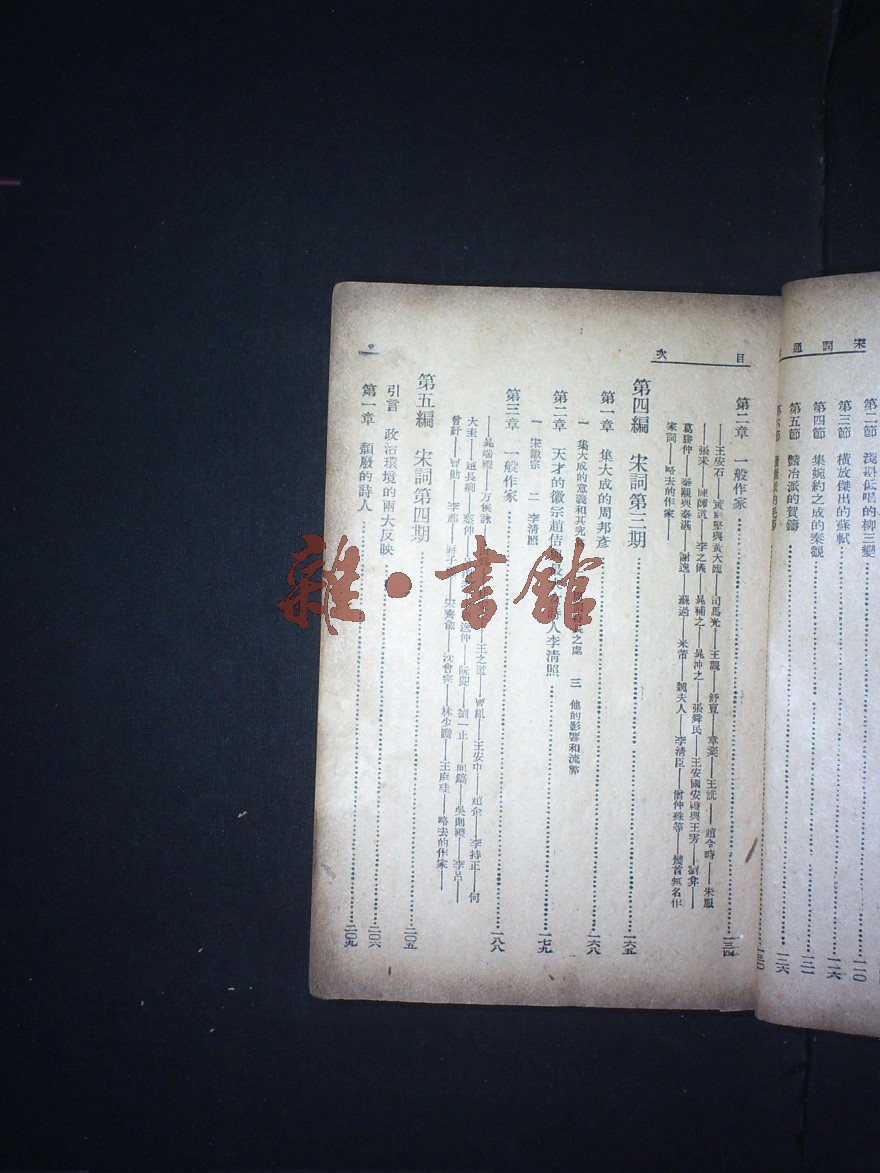 宋詞通
第二節 淺斟低唱的柳三變 一一〇
第三節 橫放傑出的蘇軾 一一六
第四節 集婉約之成的秦觀 一二一
第五節 豔冶派的賀鑄 一二六
一三〇
目次
第二章 一般作家 一三四
——王安石 黃庭堅與黃大臨——司馬光——王觀——舒亶——章楶——王詵——趙令畤——朱服
——張耒——陳師道——李之儀——晁補之——晁沖之——張舜民——王安國安禮與王雱
葛勝仲——秦觀與秦湛——謝逸——蘇過——米芾——魏夫人——李清臣——僧仲殊等——幾首無名作
宋詞——略去的作家——
第四編 宋詞第三期 一六五
第一章 集大成的周邦彥 一六八
一 集大成的意義和其 之處 三 他的影響和流弊
第二章 天才的徽宗趙佶 詩人李清照 一七九
一 宋徽宗 二 李清照
第三章 一般作家 一八八
——晁端禮——万俟詠 王之道——曹組——王安中——趙企——李持正——何
大圭——趙長卿——蔡伸 阮閱——劉一止 吳則禮——李呂——
曾紆 李邴 宋齊愈——沈會宗——林少瞻 略去的作家——
第五編 宋詞第四期 二〇五
引言 政治環境的兩大反映 二〇六
第一章 頹廢的詩人 二〇九
雜·書館